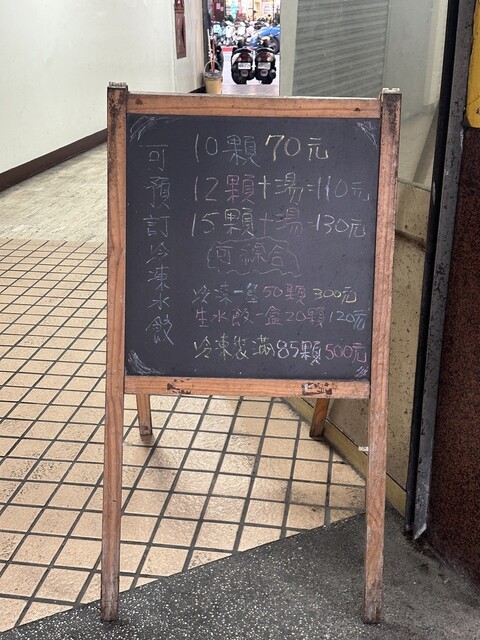 可預訂冷凍水餃
10顆70元
12顆+湯=110元
15顆+湯=130元
可綜合
冷凍一盒50顆300元
生水餃一盒20顆120元
冷凍袋滿85顆500元